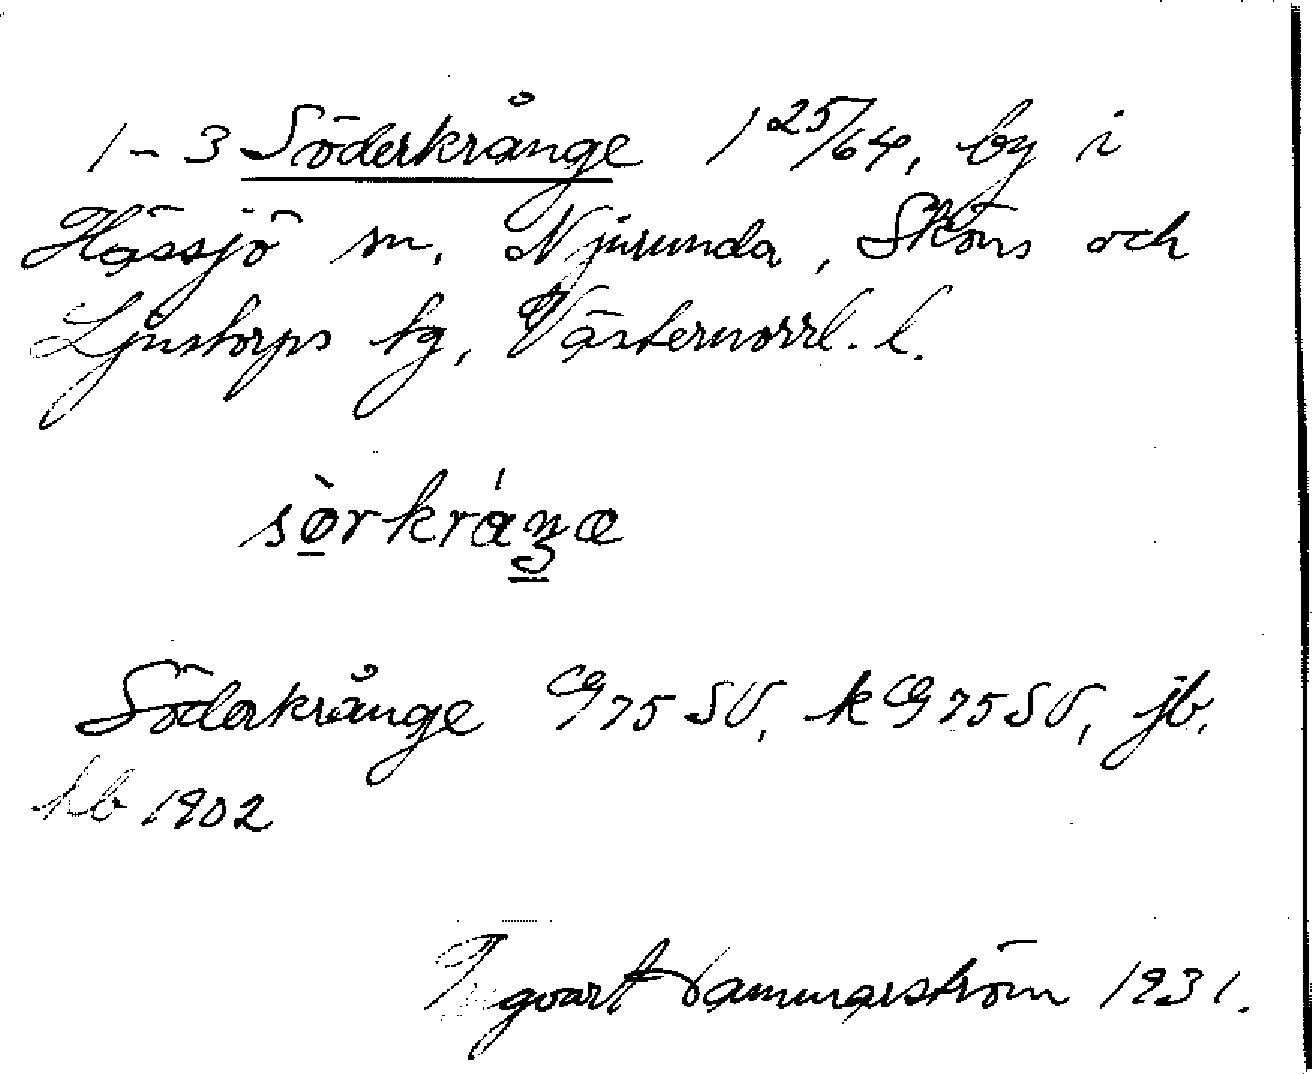 1-3 Söderkrånge 1 25/64, by i
Hässjö sn, Njurunda, Sköns och
Ljustorps tg, Västernorrl. l.
sörkráŋæ
Söderkrånge G 75 SV, k G 75 SV, jb,
hb 1902
Ingvart Hammarström 1931.